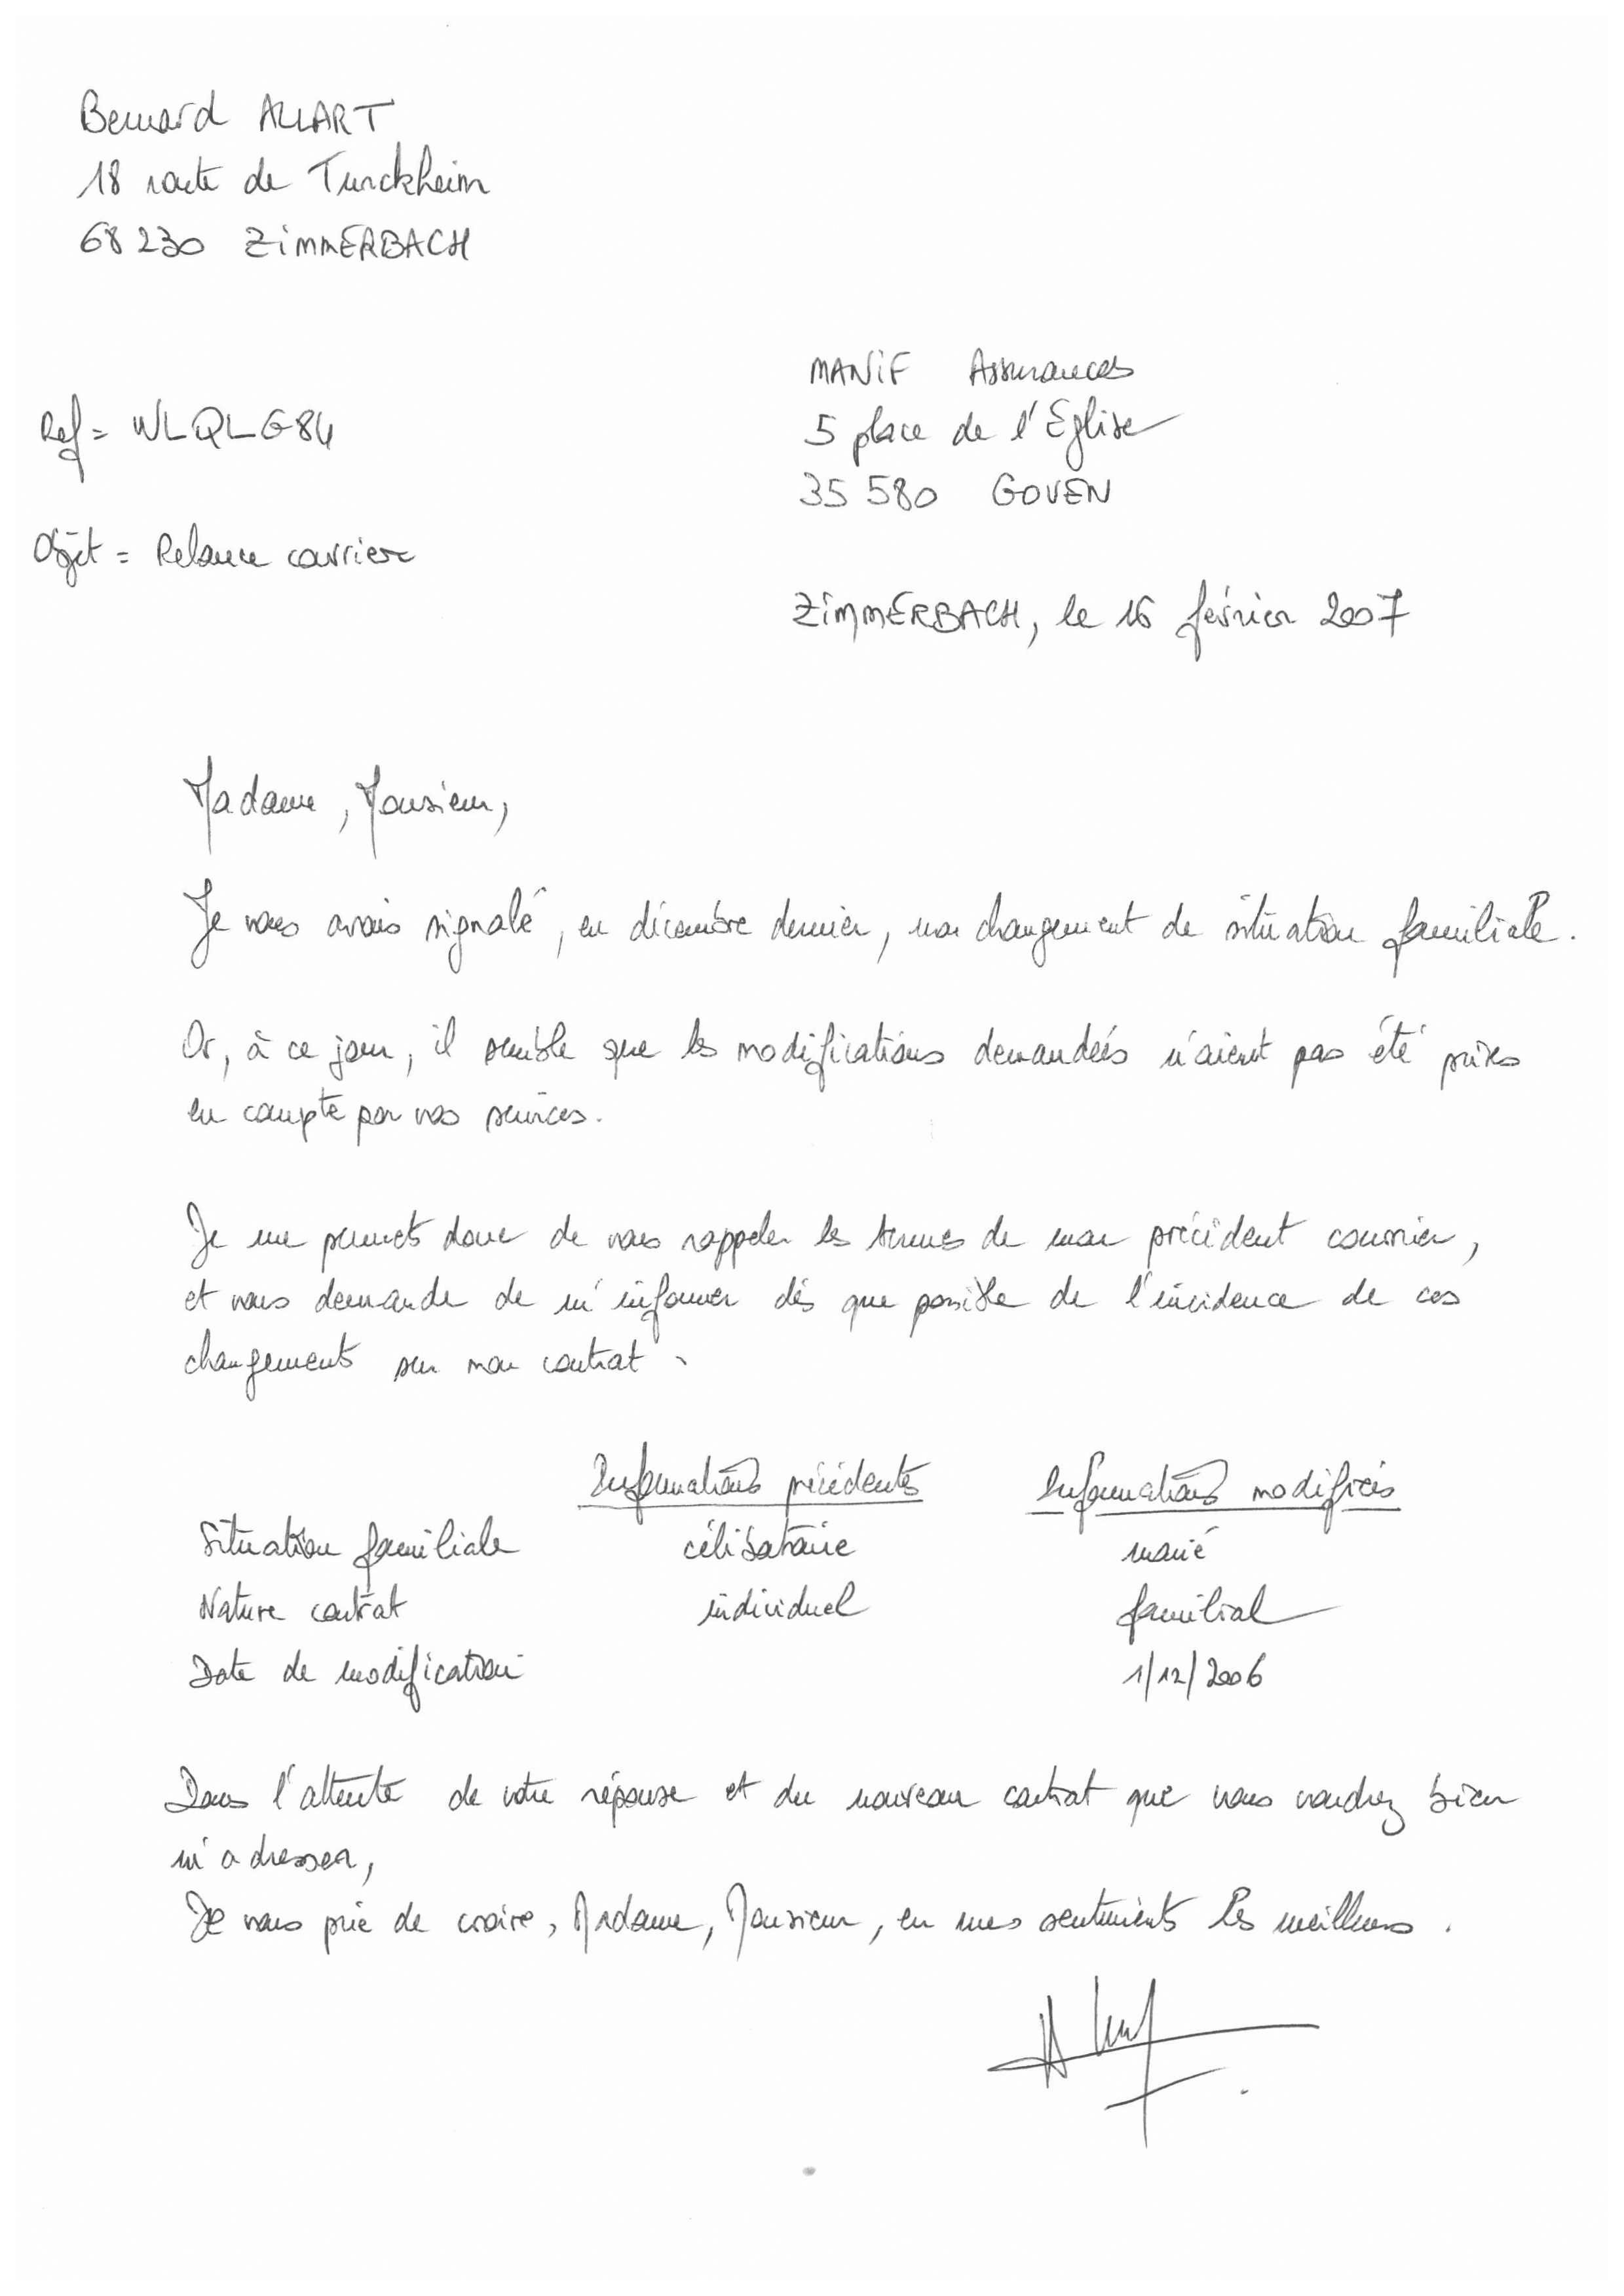 Bernard ALLART
18 route de Turckheim
68230 ZIMMERBACH
MANIF Assurances
5 place de l'Eglise
35580 GOVEN
Ref = WLQLG84
Objet = Relance courrier
ZIMMERBACH, le 16 février 2007
Madame, Monsieur,
Je vous avais signalé, en décembre dernier, mon changement de situation familiale.
Or, à ce jour, il semble que les modifications demandées n'aient pas été prises
en compte par vos services.
Je me permets donc de vous rappeler les termes de mon précédent courrier,
et vous demande de m'informer dès que possible de l'incidence de ces
changements sur mon contrat.
Informations précédentes Informations modifiées
Situation familiale célibataire marié
Nature contrat individuel familial
Date de modification 1/12/2006
Dans l'attente de votre réponse et du nouveau contrat que vous voudrez bien
m'adresser,
Je vous prie de croire, Madame, Monsieur, en mes sentiments les meilleurs.